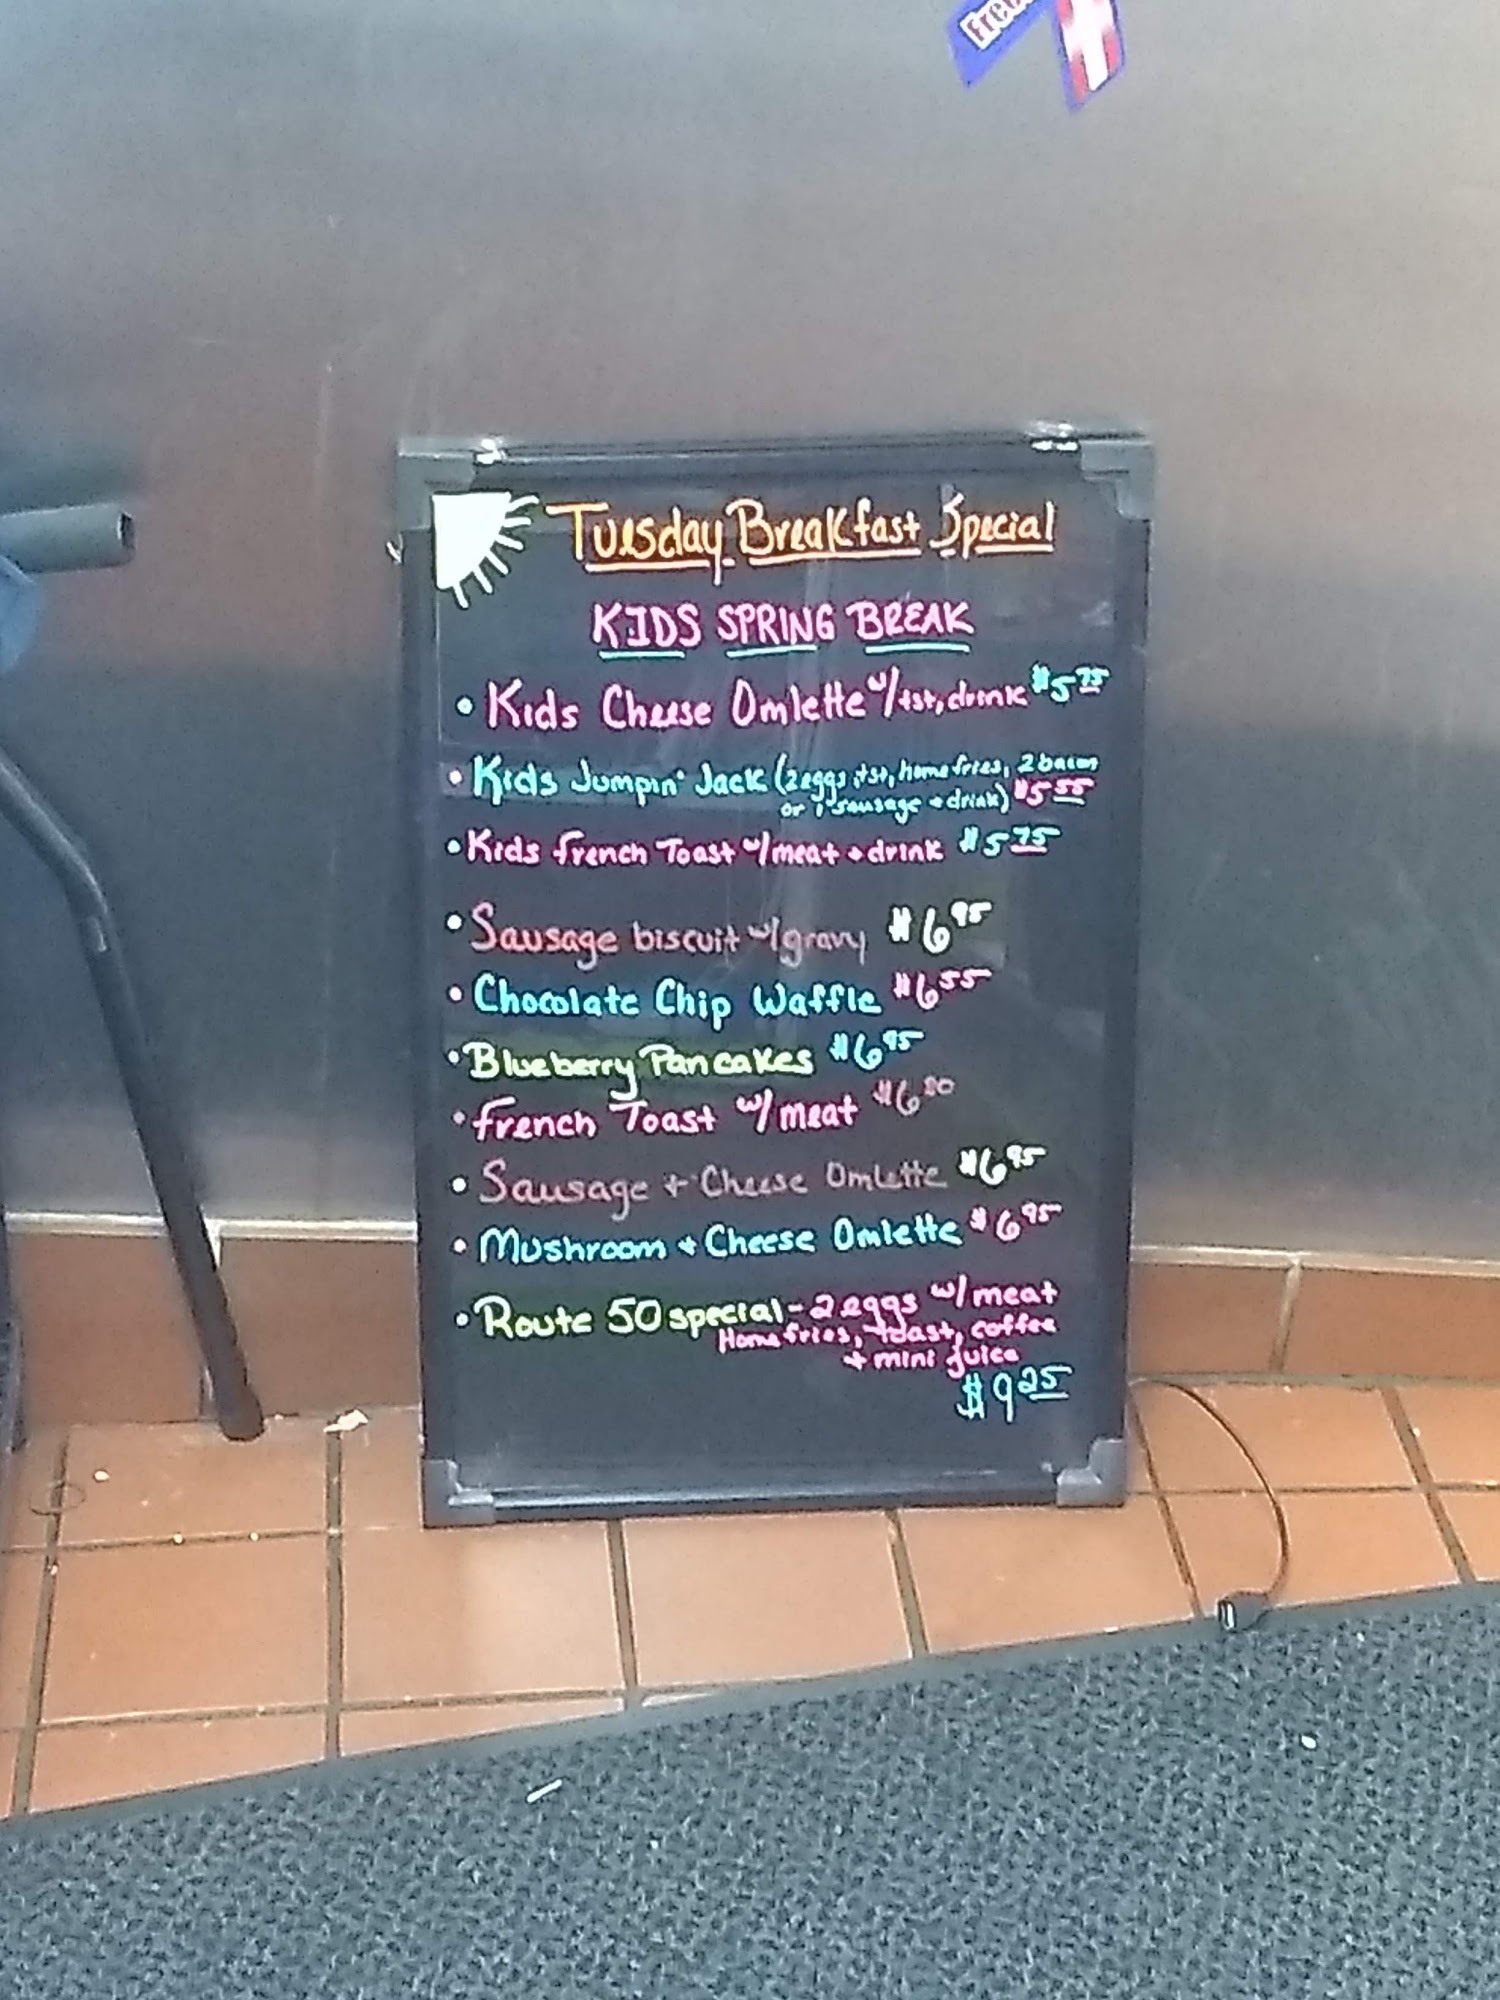 Tuesday Breakfast Special
KIDS SPRING BREAK
• Kids Cheese Omlette w/tst, drink $5.75
• Kids Jumpin' Jack (2 eggs, tst, home fries, 2 bacon
or 1 sausage + drink) $5.55
• Kids French Toast w/meat + drink $5.75
• Sausage biscuit w/gravy $6.95
• Chocolate Chip Waffle $6.55
• Blueberry Pancakes $6.95
• French Toast w/meat $6.80
• Sausage + Cheese Omlette $6.95
• Mushroom + Cheese Omlette $6.95
• Route 50 special - 2 eggs w/meat
Home fries, toast, coffee
+ mini juice
$9.25